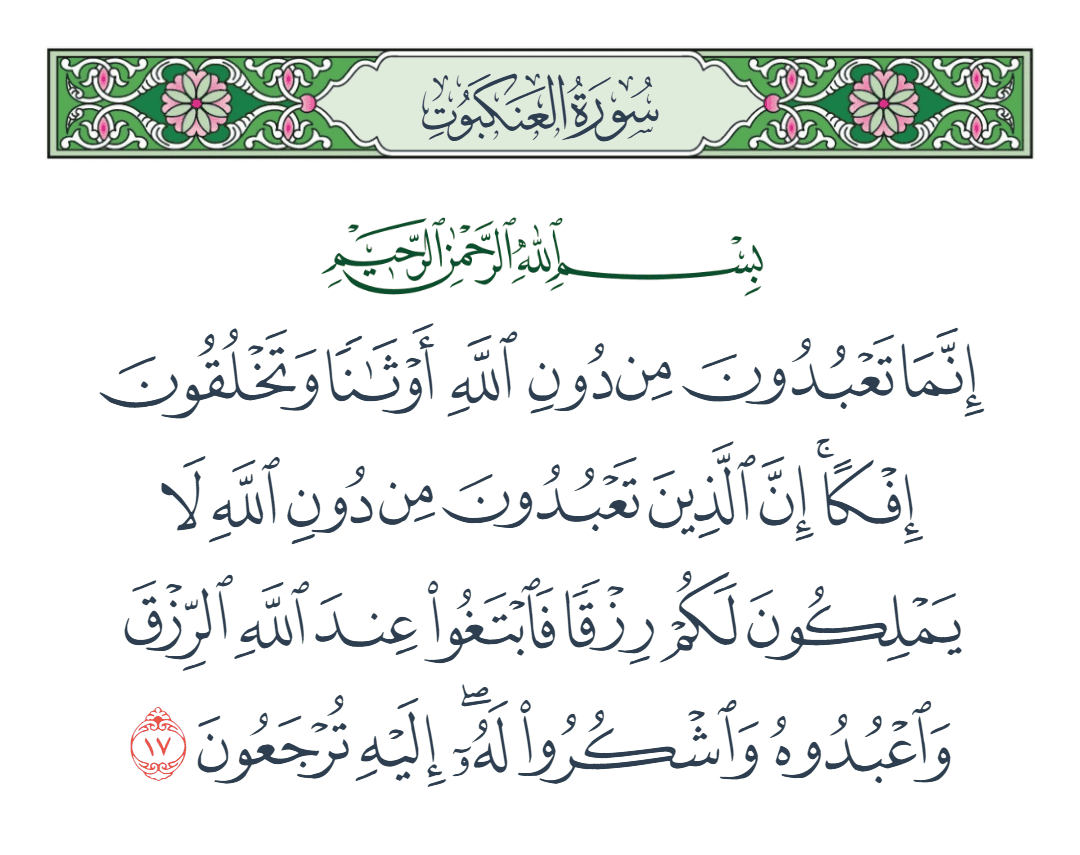 سُورَةُ العَنكَبُوتِ
بِسْمِ ٱللَّهِ ٱلرَّحْمَٰنِ ٱلرَّحِيمِ
إِنَّمَا تَعْبُدُونَ مِن دُونِ ٱللَّهِ أَوْثَـٰنًا وَتَخْلُقُونَ
إِفْكًا ۚ إِنَّ ٱلَّذِينَ تَعْبُدُونَ مِن دُونِ ٱللَّهِ لَا
يَمْلِكُونَ لَكُمْ رِزْقًا فَٱبْتَغُوا۟ عِندَ ٱللَّهِ ٱلرِّزْقَ
وَٱعْبُدُوهُ وَٱشْكُرُوا۟ لَهُۥٓ ۖ إِلَيْهِ تُرْجَعُونَ ١٧